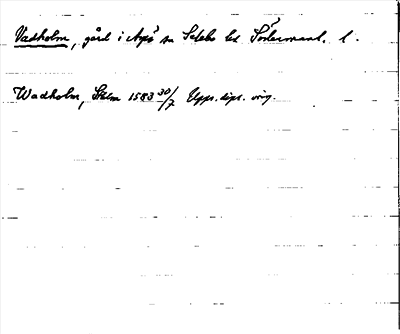 Vadholm, gård i Aspö sn Selebo hd Södermanl. l.
Wadholm, Sthlm 1583 30/7 Upps. dipl. orig.